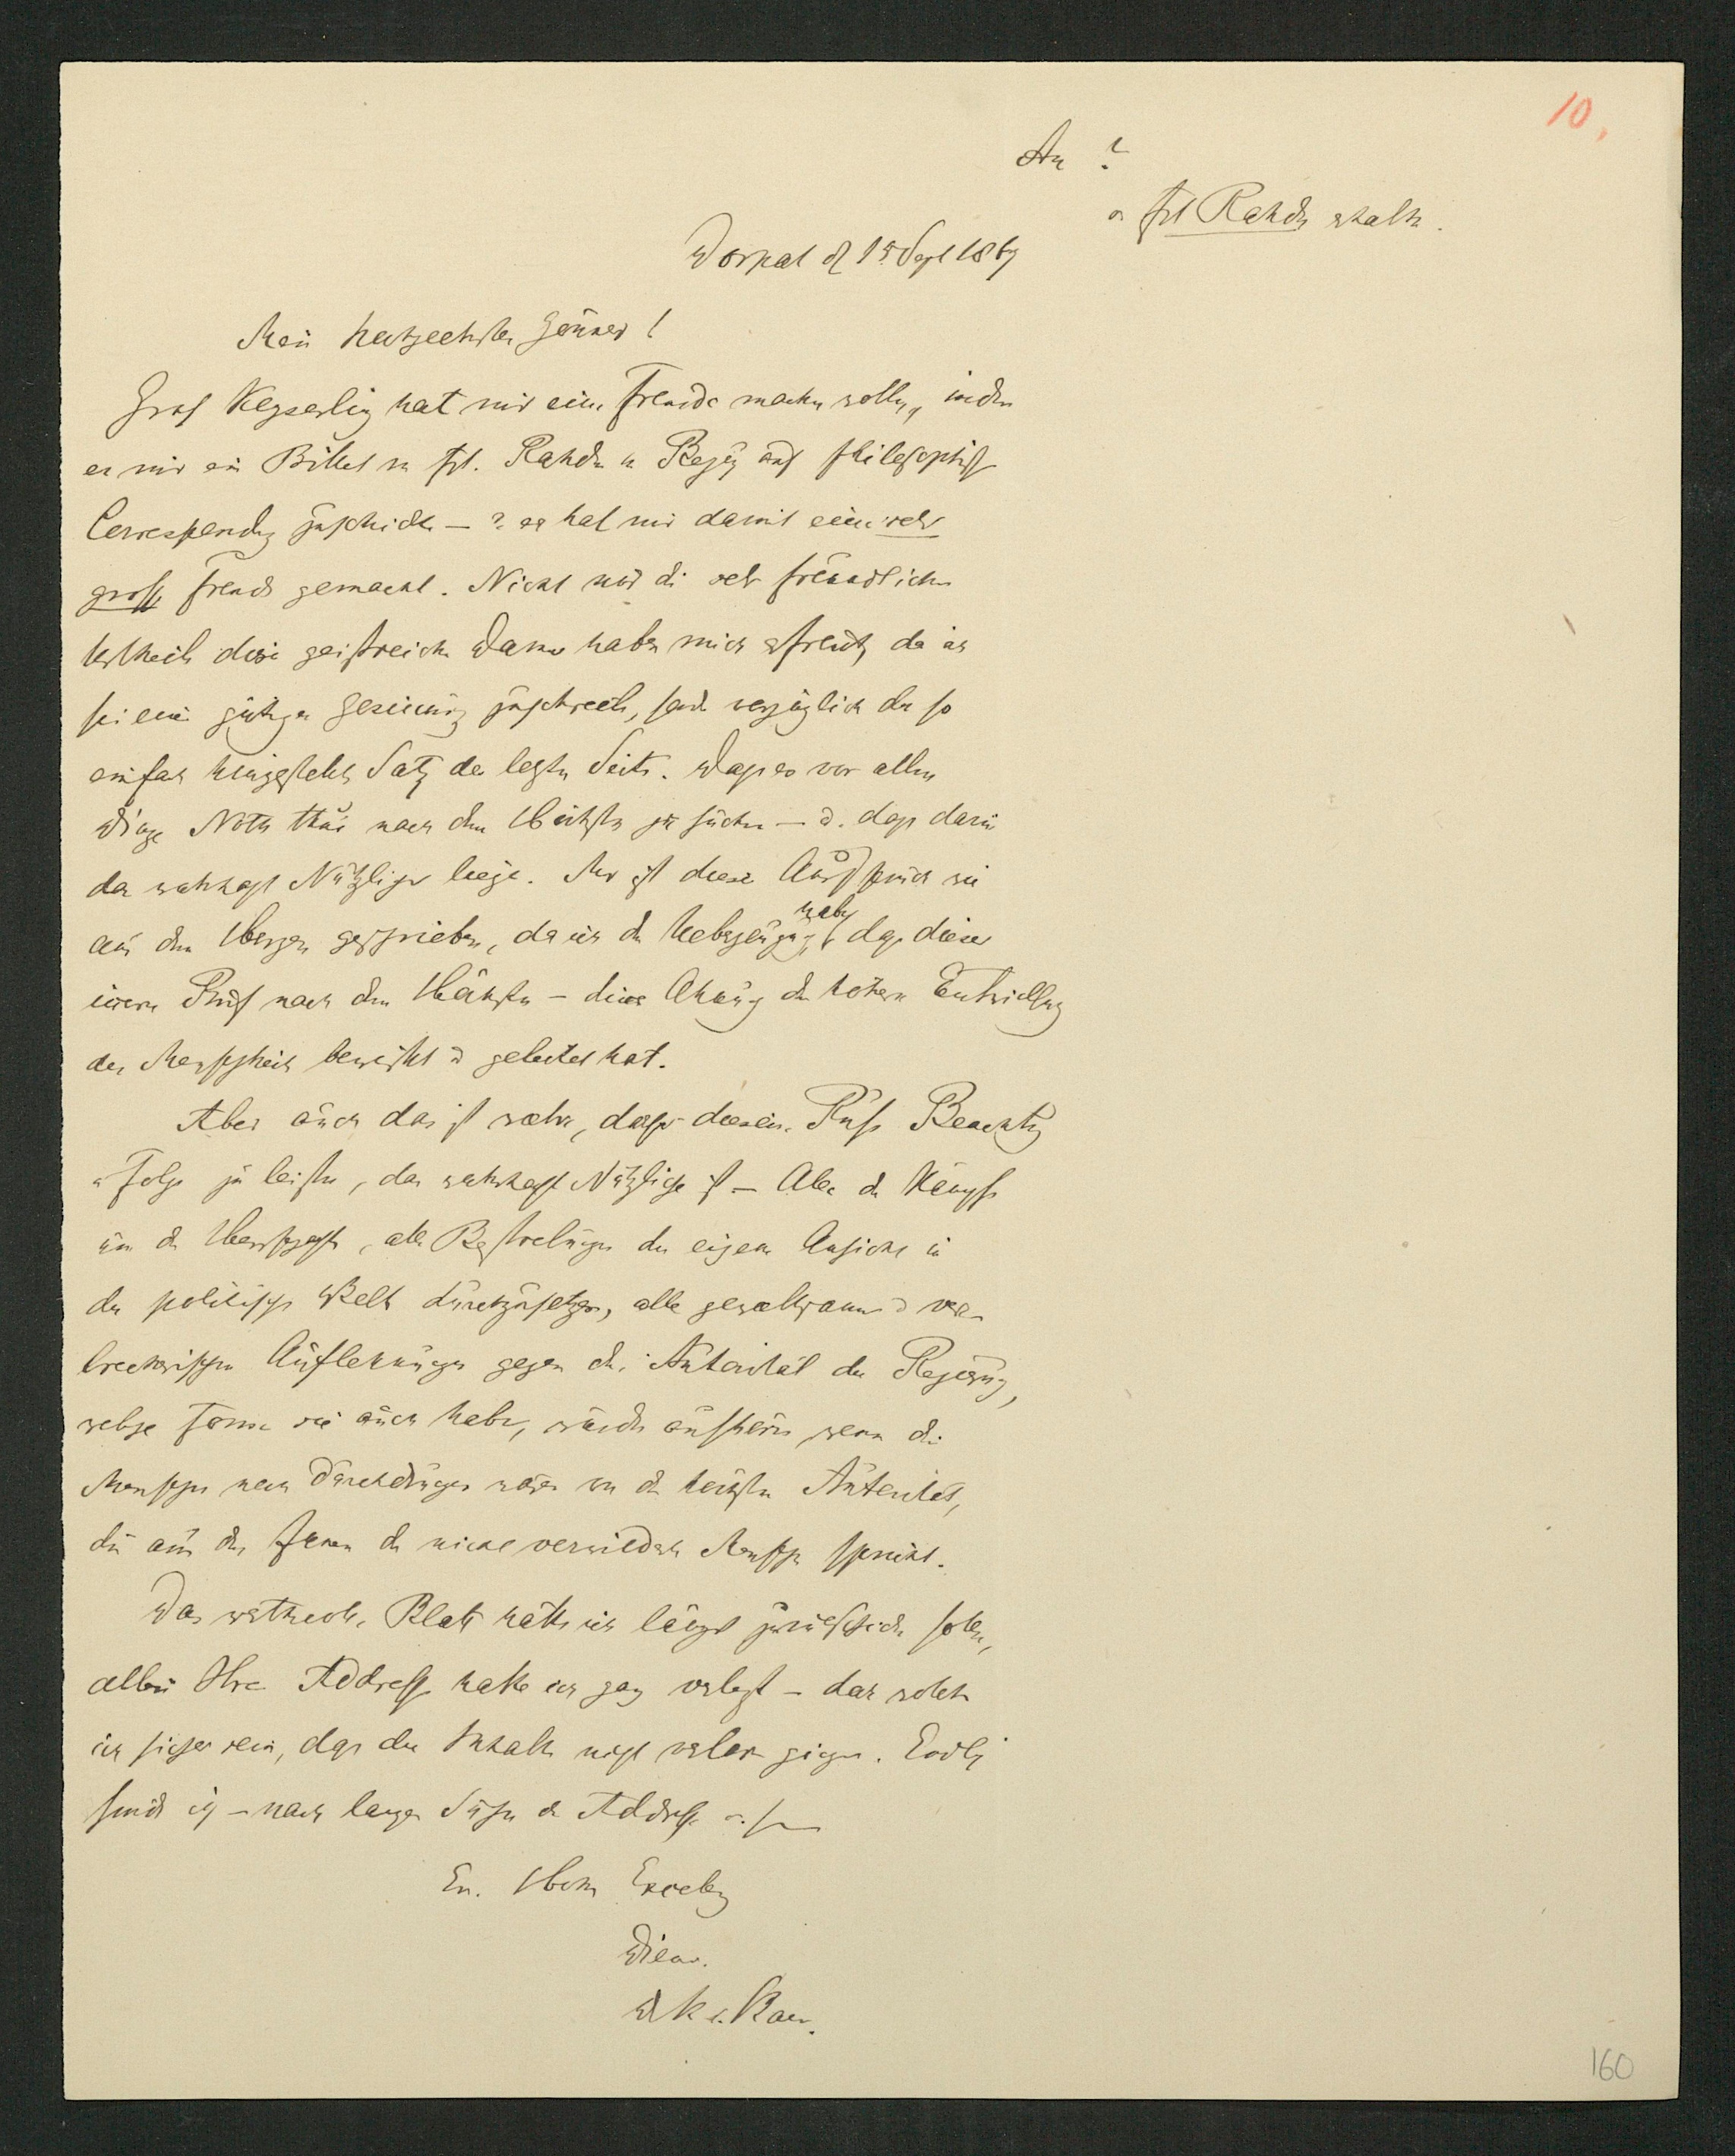 10.
An ?
v. Frl Rahden erhalten.
Dorpat d 15 Sept 1869
Mein hochgeehrter Gönner!
Graf Keyserling hat mir eine Freude machen wollen, indem
er mir ein Billet von Frl. Rahden in Bezug auf philosophische
Correspondenz zuschickte — u. er hat mir damit eine sehr
grosse Freude gemacht. Nicht nur die sehr freundlichen
Urtheile dieser geistreichen Dame haben mich erfreut, da ich
sie einer gütigen Gesinnung zuschreibe, sondern vorzüglich der so
einfach hingestellte Satz der letzten Seite. Dass es vor allen
Dingen Noth thue nach dem Höchsten zu suchen — u. dass darin
das wahrhaft Nützliche liege. Mir ist dieser Ausspruch wie
aus dem Herzen geschrieben, da ich die Ueberzeugung habe dass dieser
innere Ruf nach dem Höchsten — diese Ahnung die höhere Entwicklung
der Menschheit bewirkt u geleitet hat.
Aber auch das ist wahr, dass diesem Rufe Beachtung
u Folge zu leisten, das wahrhaft Nützliche ist — Alle die Kämpfe
um die Herrschaft, alle Bestrebungen der eigenen Ansicht in
der politischen Welt durchzusetzen, alle gewaltsamen u ver-
brecherischen Auflehnungen gegen die Autorität der Regierung,
welche Form sie auch habe, würden aufhören wenn die
Menschen mehr durchdrungen wären von der höchsten Autorität,
die aus dem Innern des nicht verwilderten Menschen spricht.
Das werthvolle Blatt hätte ich längst zurückschicken sollen,
allein Ihre Addresse hatte ich ganz verlegt — doch wollte
ich sicher sein, dass der Inhalt nicht verloren ginge. Endlich
finde ich — nach langem Suchen die Addresse
Ew. Hohen Excellenz
Diener
Dr K. v. Baer.
160